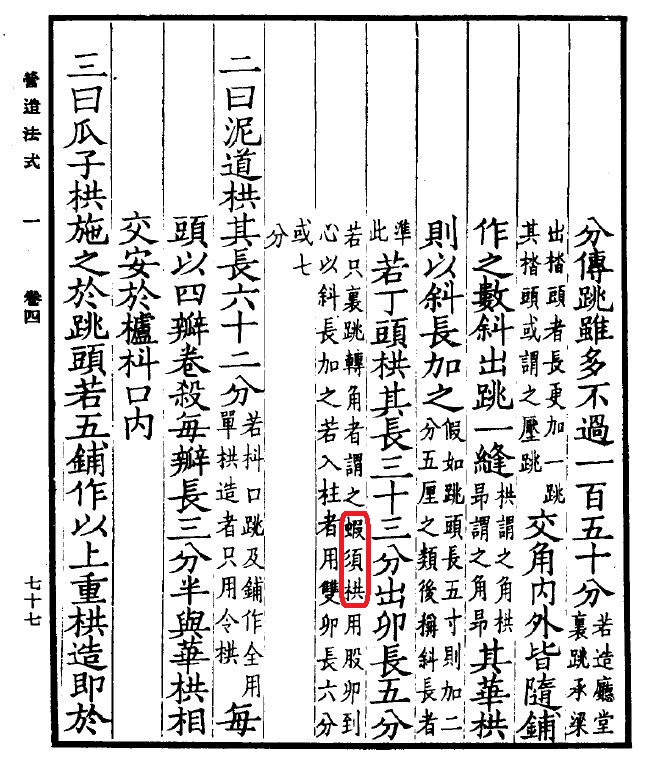 分傳跳雖多不過一百五十分若造廳堂裏跳承梁
出楷頭者長更加一跳其楷頭或謂之壓跳交角内外皆隨鋪
作之數斜出跳一縫栱謂之角栱昂謂之角昂其華栱
則以斜長加之假如跳頭長五寸則加二分五厘之類後稱斜長者
準此若丁頭栱其長三十三分出卯長五分
若只裏跳轉角者謂之蝦須栱用股卯到心以斜長加之若入柱者用雙卯長六分
或七分
二曰泥道栱其長六十二分若枓口跳及鋪作全用單栱造者只用令栱每
頭以四瓣卷殺每瓣長三分半與華栱相
交安於櫨枓口内
三曰瓜子栱施之於跳頭若五鋪作以上重栱造即於
營造法式 一 卷四 七十七